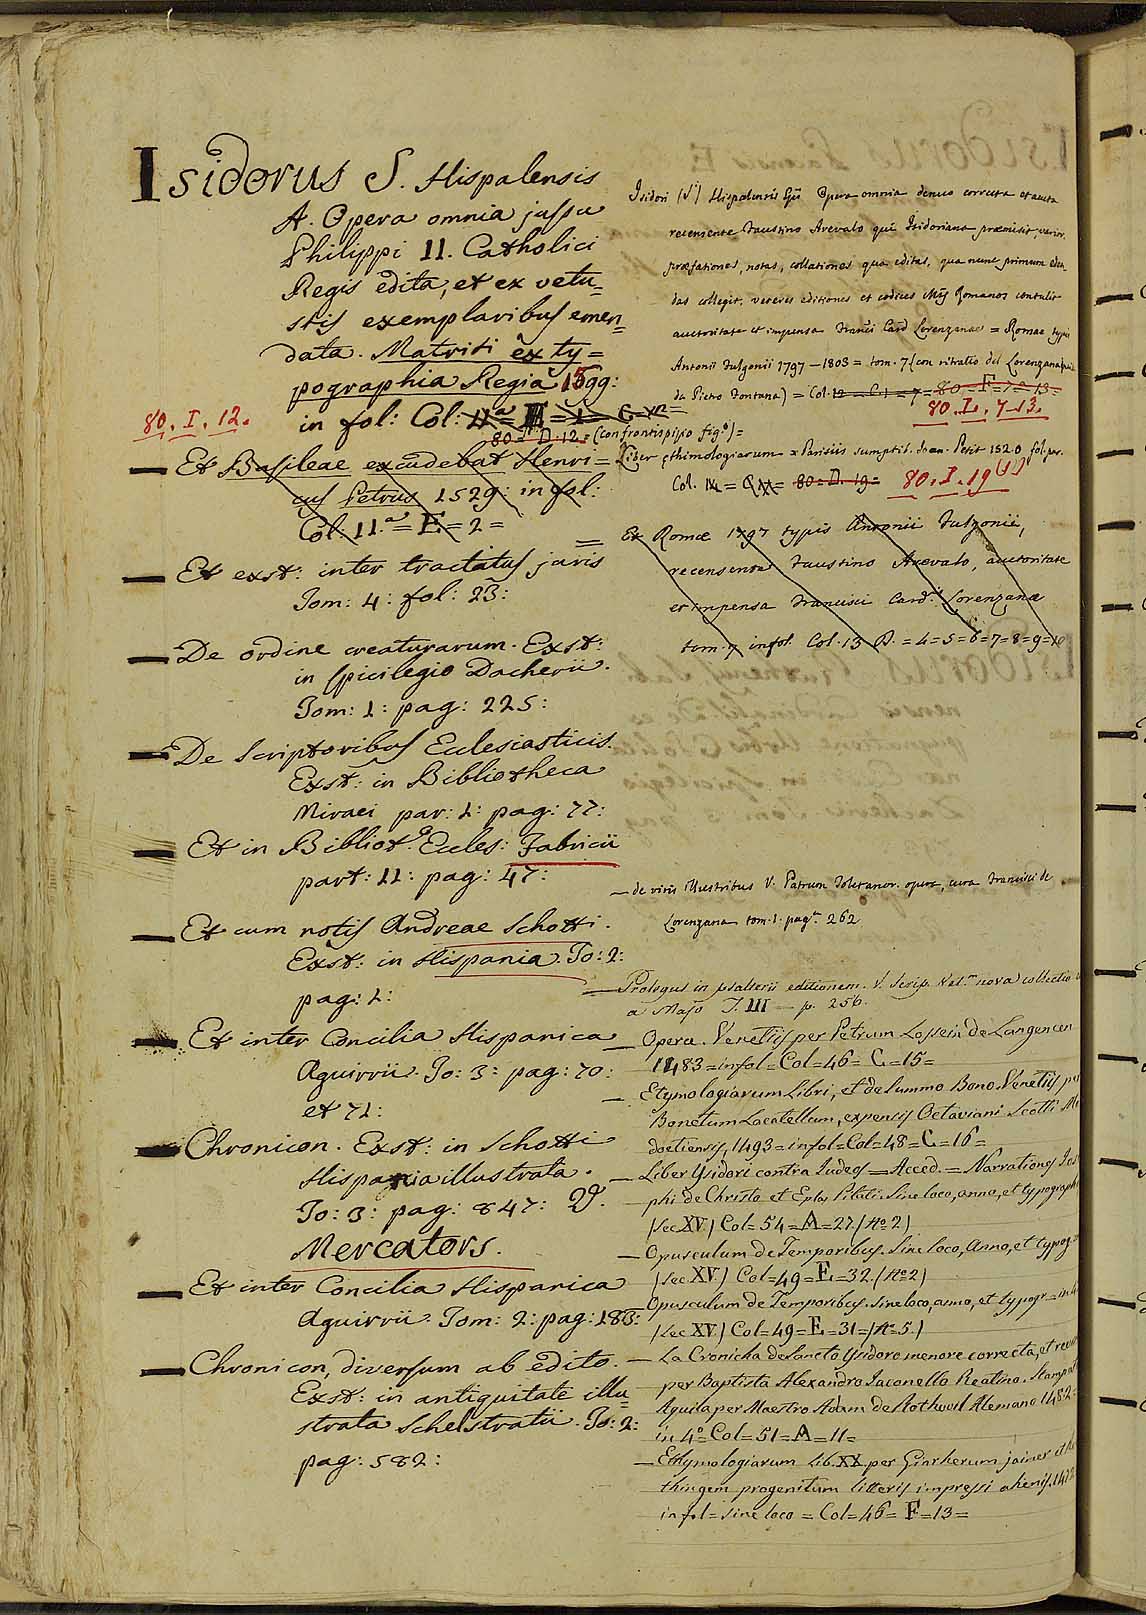 Isidorus S. Hispalensis
A. Opera omnia jussu
Philippi II. Catholici
Regis edita, et ex vetu=
stis exemplaribus emen=
data. Matriti ex ty=
pographia Regia 1599:
80. I. 12.
in fol: Col:
80 = D. 12 = (con frontispizio fig.º) =
Et Basileae excudebat Henri=
cus Petrus 1529: in fol:
Col: 11.ª = E = 2 =
Et exst: inter tractatus juris
Tom: 4: fol: 23:
De ordine creaturarum. Exst:
in spicilegio Dacherii.
Tom: 1: pag: 225:
De Scriptoribus Ecclesiasticis.
Exst: in Bibliotheca
Miraei par: 1: pag: 77:
Et in Bibliot.ª Eccles: Fabricii
part: 11: pag: 47:
Et cum notis Andreae Schotti.
Exst: in Hispania. To: 2:
pag: 1:
Et inter Concilia Hispanica
Aguirrii. To: 3: pag: 70:
et 71:
Chronicon. Exst: in Schotti
Hispania illustrata.
To: 3: pag: 847: Vº.
Mercators.
Et inter Concilia Hispanica
Aguirrii. Tom: 2: pag: 183:
Chronicon, diversum ab edito.
Exst: in antiquitate illu=
strata Schelstratii. To: 2:
pag: 582:
Isidori (S.i) Hispalensis Epi Opera omnia denuo correcta et aucta
recensente Faustino Arevalo qui Isidoriana praemisit, varior.
praefationes, notas, collationes qua editas, qua nunc primum eden
das collegit, veteres editiones et codices Mss Romanos contulit
auctoritate et impensa Franci Card Lorenzanae = Romae typis
Antonii Fulgonii 1797 - 1803 = tom. 7 (con ritratto del Lorenzana
da Pietro Fontana) = Col. 12 = C. 1 = 7 = 80 = F = 7 = 13 =
80. I. 7-13.
Liber ethimologiarum = Parisiis sumptib. Joan. Petit 1520 fol. par.
Col. 14 = 80 = D. 19 = 80. I. 19 (1)
= Et Romae 1797 typis Antonii Fulgonii,
recensente Faustino Arevalo, auctoritate
et impensa Francisci Card.l Lorenzanae
tom. 7 in fol. Col. 13 D. = 4 = 5 = 6 = 7 = 8 = 9 = 10
- de viris illustribus V. Patrum Toletanor. opera, cura Francisci de
Lorenzana tom. 1. pag. 262
- Prologus in psalterii editionem. V. Scrip. Vet.m nova collectio
a Majo T. III - p. 256.
- Opera. Venetiis per Petrum Loslein de Langencen
1483 = in fol = Col = 46 = C = 15 =
- Etymologiarum Libri, et de Summo Bono. Venetiis per
Bonetum Locatellum, expensis Octaviani Scotti Mo
doetiensis, 1493 = in fol = Col = 48 = C = 16 =
- Liber Ysidori contra Judeos = Acced. = Narrationes Jose
phi de Christo et Epla Pilati. Sine loco, anno, et typograph
(Sec XV.) Col = 54 = A = 27. (Nº 2)
- Opusculum de Temporibus. Sine loco, anno, et typog
(Sec XV.) Col = 49 = E = 32. (Nº 2)
- Opusculum de Temporibus. Sine loco, anno, et typogr = in
(Sec XV.) Col = 49 = E = 31 = (Nº 5.)
- La Cronicha de Sancto Ysidoro menore correcta, et
per Baptista Alexandro Jaconello Reatino. Stampat
Aquila per Maestro Adam de Rotweil Alemano 1482 =
in 4º = Col = 51 = A = 11 =
- Ethymologiarum Lib. XX per Gintherum jainer
thingem progenitum litteris impressi ahenis. 1472
in fol = sine loco = Col = 46 = F = 13 =